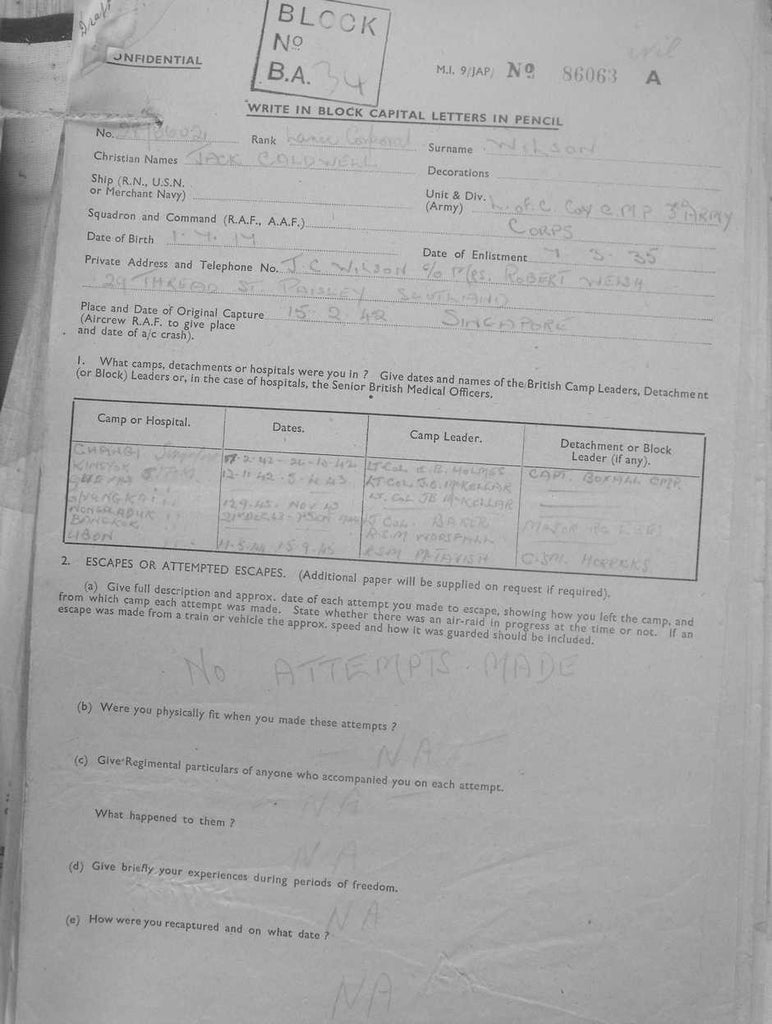 BLOCK
Nº
B.A. 34
CONFIDENTIAL
M.I. 9/JAP/ Nº 86063 A
WRITE IN BLOCK CAPITAL LETTERS IN PENCIL
No. Rank Lance Corporal Surname WILSON
Christian Names JACK CALDWELL Decorations
Ship (R.N., U.S.N.
or Merchant Navy)
Unit & Div.
(Army) L. of. C. Coy C.M.P. 3rd ARMY
CORPS
Squadron and Command (R.A.F., A.A.F.)
Date of Birth Date of Enlistment 7 3. 35
Private Address and Telephone No. J. C. WILSON c/o MRS. ROBERT
29 THREAD ST. PAISLEY SCOTLAND
Place and Date of Original Capture 15 2 42 SINGAPORE
(Aircrew R.A.F. to give place
and date of a/c crash).
1. What camps, detachments or hospitals were you in ? Give dates and names of the British Camp Leaders, Detachment
(or Block) Leaders or, in the case of hospitals, the Senior British Medical Officers.
Camp or Hospital. Dates. Camp Leader. Detachment or Block
Leader (if any).
CHANGI LT COL HOLMES CAPT. BOXALL CMP.
KINSYOK 12-11-42 - 5-4-43 LT COL J.B. McKELLAR
LT. COL JB McKELLAR
NOV 43
LT COL. BAKER MAJOR
BANGKOK R.S.M
UBON 15-9-45 RSM McTAVISH C.SM.
2. ESCAPES OR ATTEMPTED ESCAPES. (Additional paper will be supplied on request if required).
(a) Give full description and approx. date of each attempt you made to escape, showing how you left the camp, and
from which camp each attempt was made. State whether there was an air-raid in progress at the time or not. If an
escape was made from a train or vehicle the approx. speed and how it was guarded should be included.
NO ATTEMPTS MADE
(b) Were you physically fit when you made these attempts ?
NA
(c) Give Regimental particulars of anyone who accompanied you on each attempt.
NA
What happened to them ?
NA
(d) Give briefly your experiences during periods of freedom.
NA
(e) How were you recaptured and on what date ?
NA